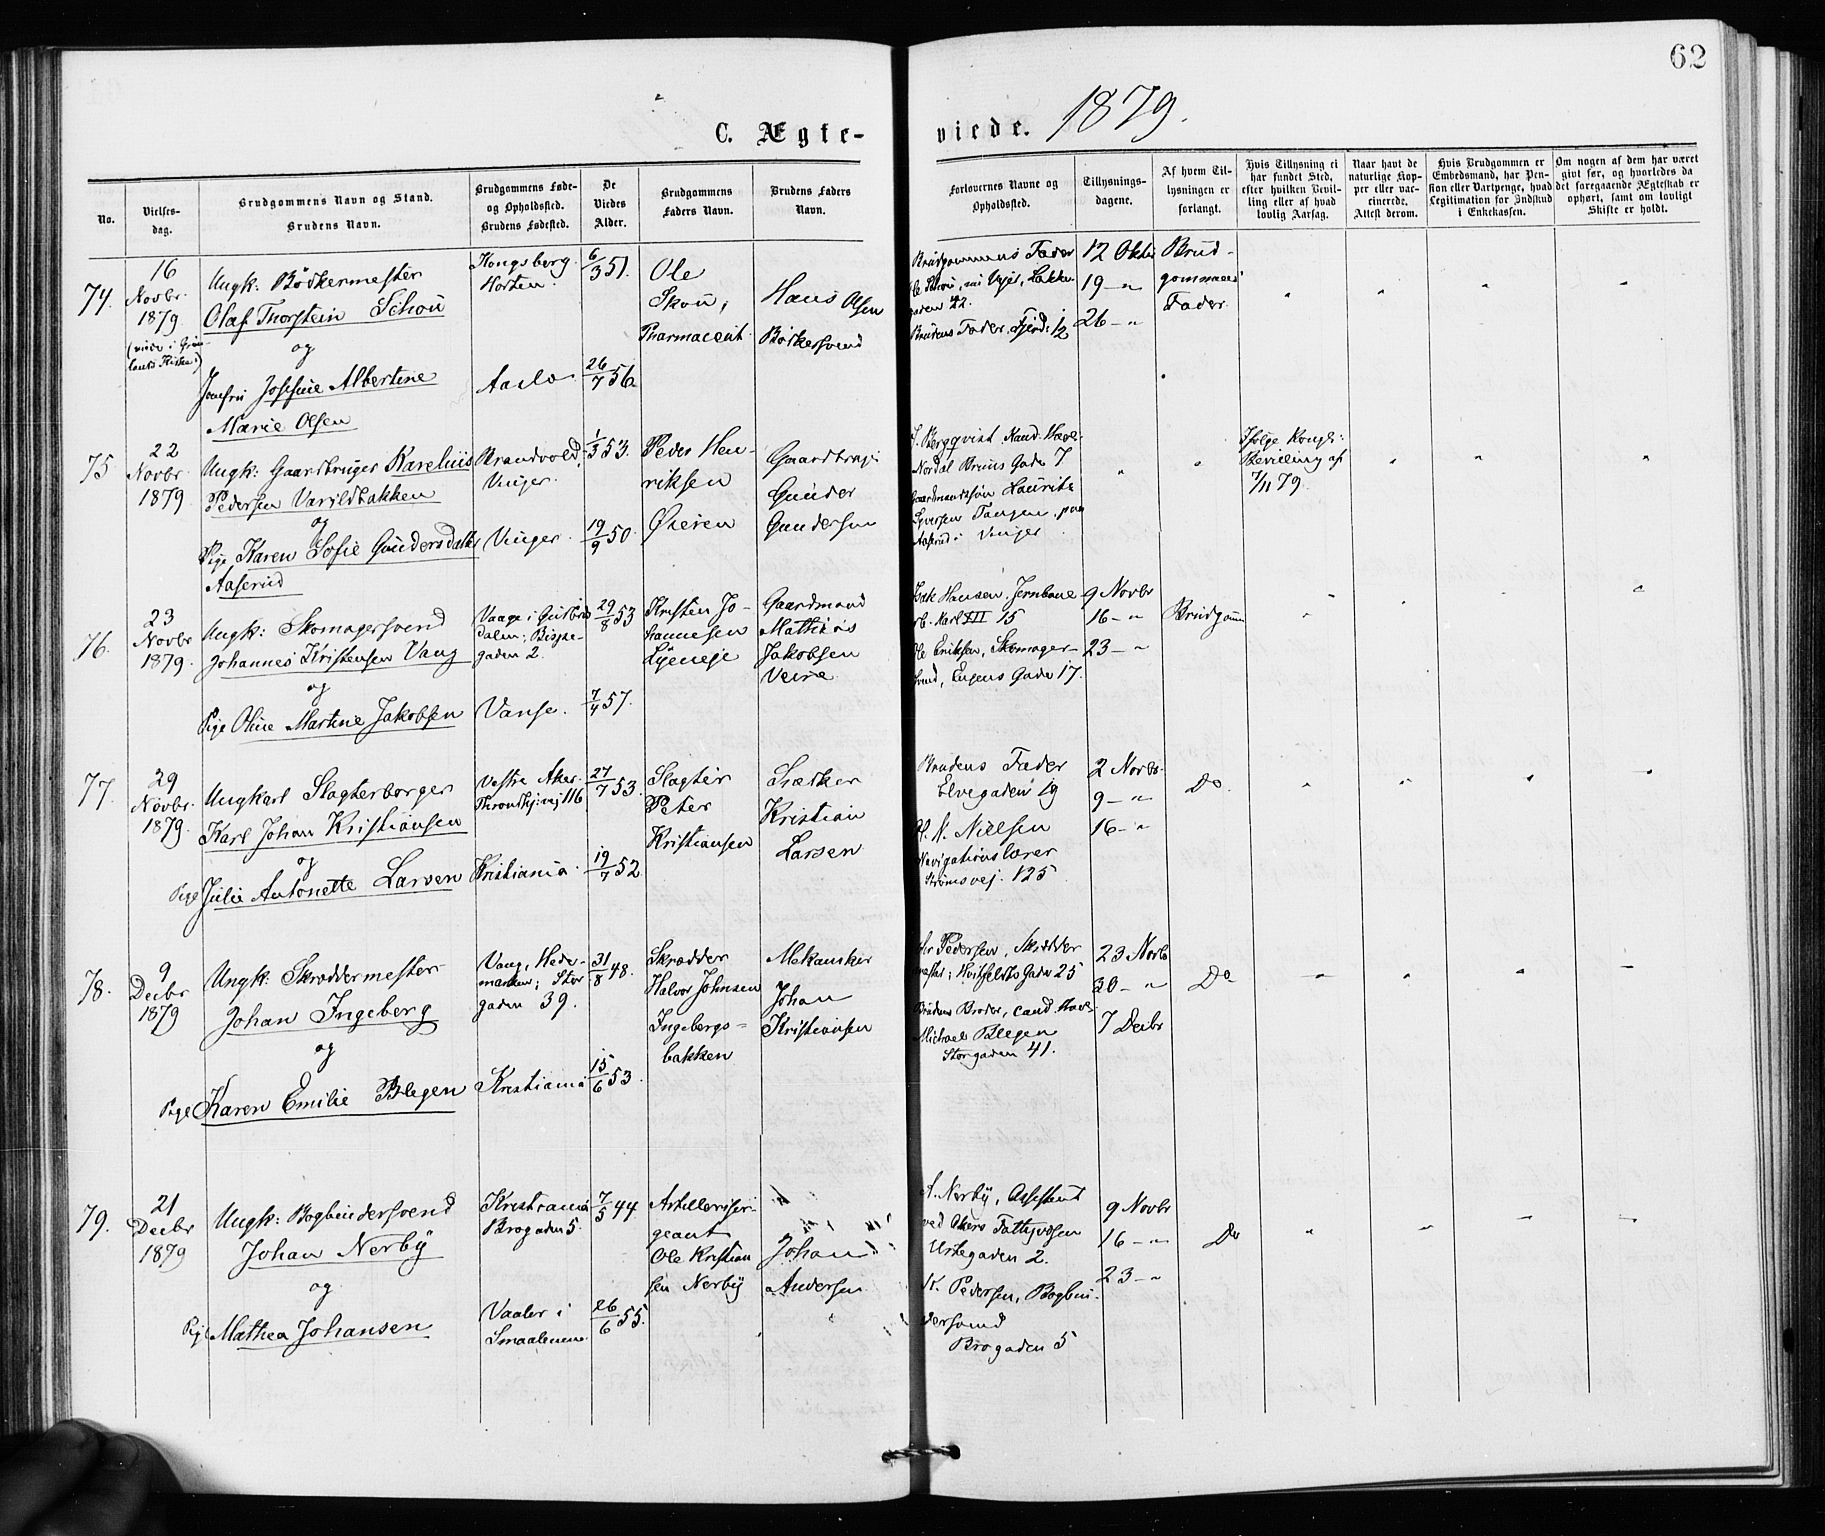 62
C. Ægte-
viede. 1879.
No.
Vielses-
dag.
Brudgommens Navn og Stand.
Brudens Navn.
Brudgommens Føde-
og Opholdssted.
Brudens Fødested.
De
Viedes
Alder.
Brudgommens
Faders Navn.
Brudens Faders
Navn.
Forlovernes Navne og
Opholdssted.
Tillysnings-
dagene.
Af hvem Til-
lysningen er
forlangt.
Hvis Tillysning ei
har fundet Sted,
efter hvilken Bevil-
ling eller af hvad
lovlig Aarsag.
Naar havt de
naturlige Kop-
per eller vac-
cinerede.
Attest derom.
Hvis Brudgommen er
Embedsmand, har Pen-
sion eller Vartpenge, hvad
Legitimation for Indskud
i Enkekassen.
Om nogen af dem har været
givt før, og hvorledes da
det foregaaende Ægteskab er
ophørt, samt om lovligt
Skifte er holdt.
74.
16
Novbr.
1879
Ungk: Bødkermester
Olaf Thorstein Schou
og
Jomfru Josefine Albertine
Marie Olsen
Kongsberg.
Horten.
Aaslo
6/3 51.
26/7 56
Ole
Skou,
Pharmaceut.
Hans Olsen
Bødkersvend
Brudgommens Fader
Brudens Fader
12 Oktbr
19 - "
26 - "
Brud-
gommens
Fader.
75
22
Novbr
1879
Ungk: Gaardbruger Karelius
Pedersen Varildbakken
og
Pige Karen Sofie Gundersdatter
Aaserud
Brandvold,
Vinger.
Vinger.
1/3 53.
19/9 50.
Peder Hen-
riksen
Øieren
Gaardbrug:
Gunder
Gundersen
Bergqvist
Nordal Bruns Gade 7
Gaardmandssøn Laurits
Syversen Tangen, paa
Aaserud i Vinger
Ifølge Kongl:
Bevilling af
7/11 79.
76.
23
Novbr
1879.
Ungk: Skomagersvend
Johannes Kristensen Vang
og
Pige Oline Martine Jakobsen
Vaage i Gudbrands
dalen; Bispe-
gaden 2.
Vanse.
29/8 53
7/4 57.
Kristen Jo-
hannesen
Gaardmand
Mathias
Jakobsen
Hansen, Jernbane
Karl XII 15
Ole Eriksen, Skomager-
svend, Eugens Gade 17.
9 Novbr
16 - "
23 - "
Brudgom
77.
29
Novbr.
1879.
Ungkarl Slagterborger
Karl Johan Kristiansen
og
Pige Julie Antonette Larsen
Vestre Aker
Throndhjvej 116
Kristiania.
27/7 53.
19/7 52
Slagter
Peter
Kristiansen
Kristian
Larsen
Brudens Fader
Elvegaden 19
N. Nielsen
Navigationslærer
Strømsvej. 125
2 Novbr.
9 - "
16 - "
Do.
78.
9
Decbr
1879
Ungk: Skræddermester
Johan Ingeberg
og
Pige Karen Emilie Blegen
Vang, Hede-
marken; Stor
gaden 39.
Kristiania
31/8 48.
15/6 53.
Skrædder
Halvor Johnsen
Ingebergs-
bakken
Mekaniker
Johan
Kristiansen
Pedersen, Skrædder
mester; Hvitfeldts Gade 25
Brudens Broder, cand.
Michael Blegen
Storgaden 41.
23 Novb
30 - "
7 Decbr
Do
79.
21
Decbr
1879
Ungk: Bogbindersvend
Johan Nerby
og
Pige Mathea Johansen
Kristiania
Brogaden 5.
Vaaler i
Smaalenene.
7/5 44.
26/6 55.
Artilleriser-
geant
Ole Kristian
sen Nerby
Johan
Andersen
A. Nerby, Assistent
ved Akers Fattigvæsen
Urtegaden 2.
N. Pedersen, Bogbin-
dersvend
Brogaden 5
9 Novbr
16 - "
23 - "
Do